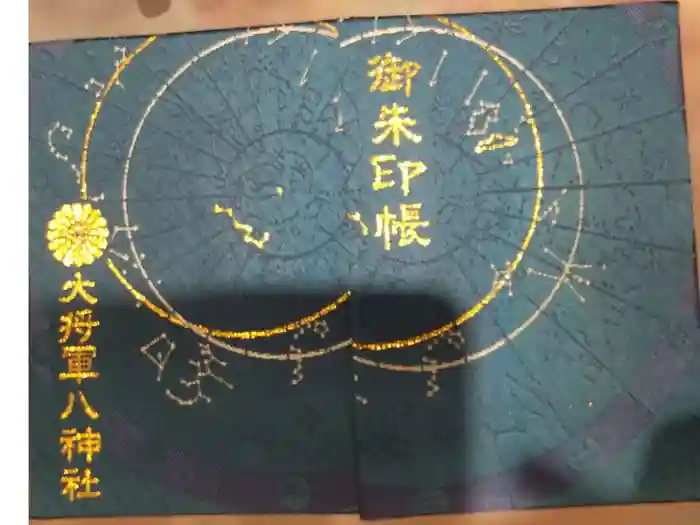 御朱印帳
大将軍八神社